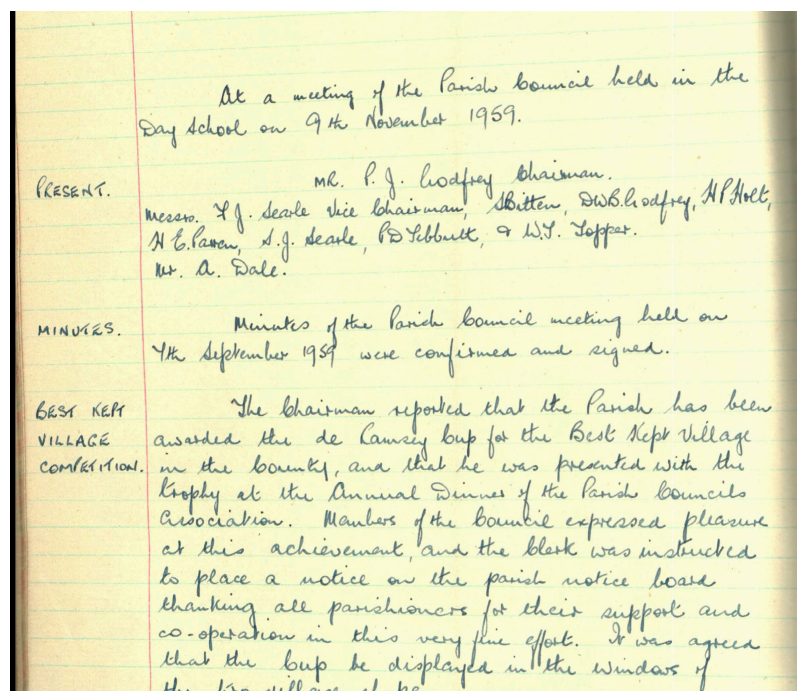 At a meeting of the Parish Council held in the
Day School on 9th November 1959.
PRESENT. MR. P. J. Godfrey Chairman.
Messrs. F. J. Searle Vice Chairman, Bitten, DWB. Godfrey, H P Holt,
H E. S. J. Searle, P D Tebbutt, & W. T. Topper.
Mr. A. Dale.
MINUTES. Minutes of the Parish Council meeting held on
7th September 1959 were confirmed and signed.
BEST KEPT The Chairman reported that the Parish has been
VILLAGE awarded the de Ramsey Cup for the Best Kept Village
COMPETITION. in the County, and that he was presented with the
trophy at the Annual Dinner of the Parish Councils
Association. Members of the Council expressed pleasure
at this achievement, and the Clerk was instructed
to place a notice on the parish notice board
thanking all parishioners for their support and
co-operation in this very fine effort. It was agreed
that the Cup be displayed in the windows of